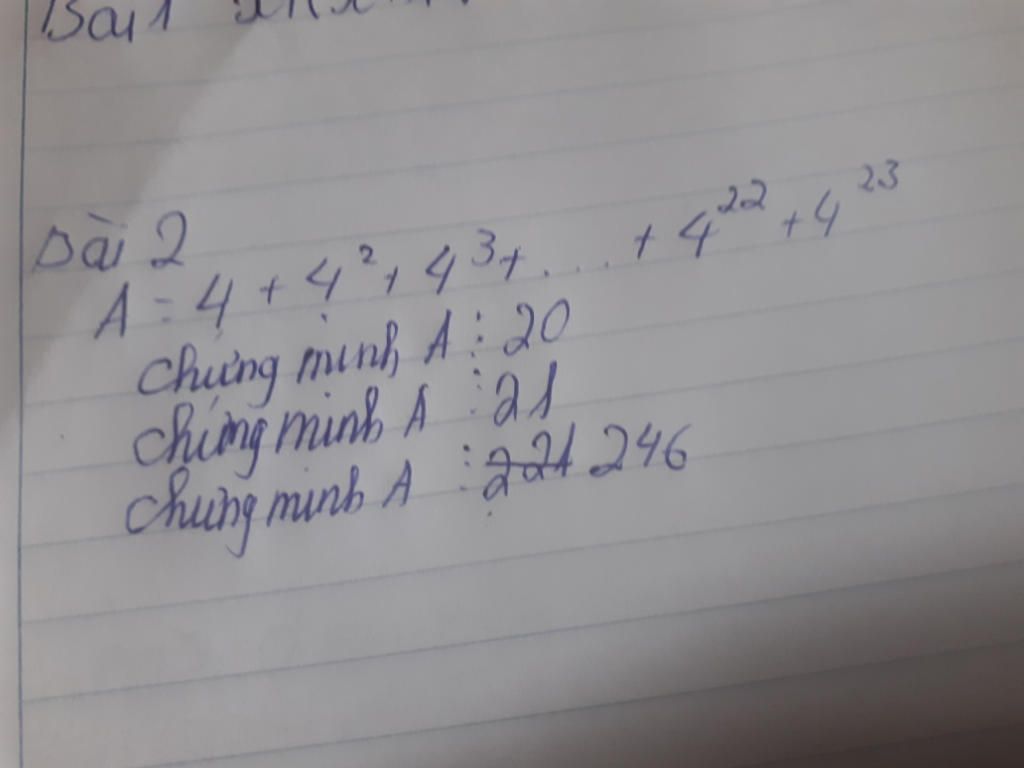 Bài 1
Bài 2
A = 4 + 4² + 4³ + .... + 4²² + 4²³
chứng minh A ⋮ 20
chứng minh A ⋮ 21
chứng minh A ⋮ 221 246